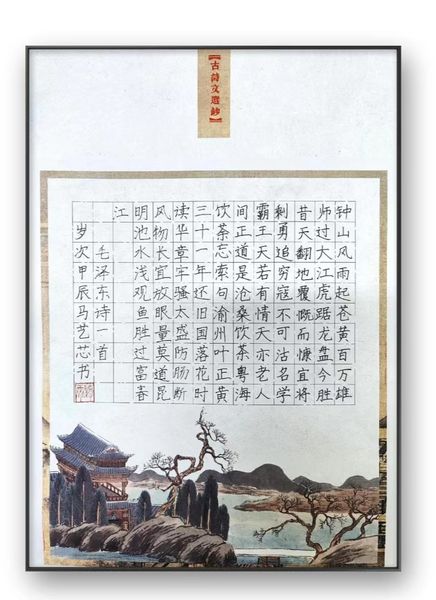 【古詩文選鈔】
钟山风雨起苍黄百万雄
师过大江虎踞龙盘今胜
昔天翻地覆慨而慷宜将
剩勇追穷寇不可沽名学
霸王天若有情天亦老人
间正道是沧桑饮茶粤海
饮茶忘索句渝州叶正黄
三十一年还旧国落花时
读华章牢骚太盛防肠断
风物长宜放眼量莫道昆
明池水浅观鱼胜过富春
江
毛泽东诗一首
岁次甲辰马艺芯书